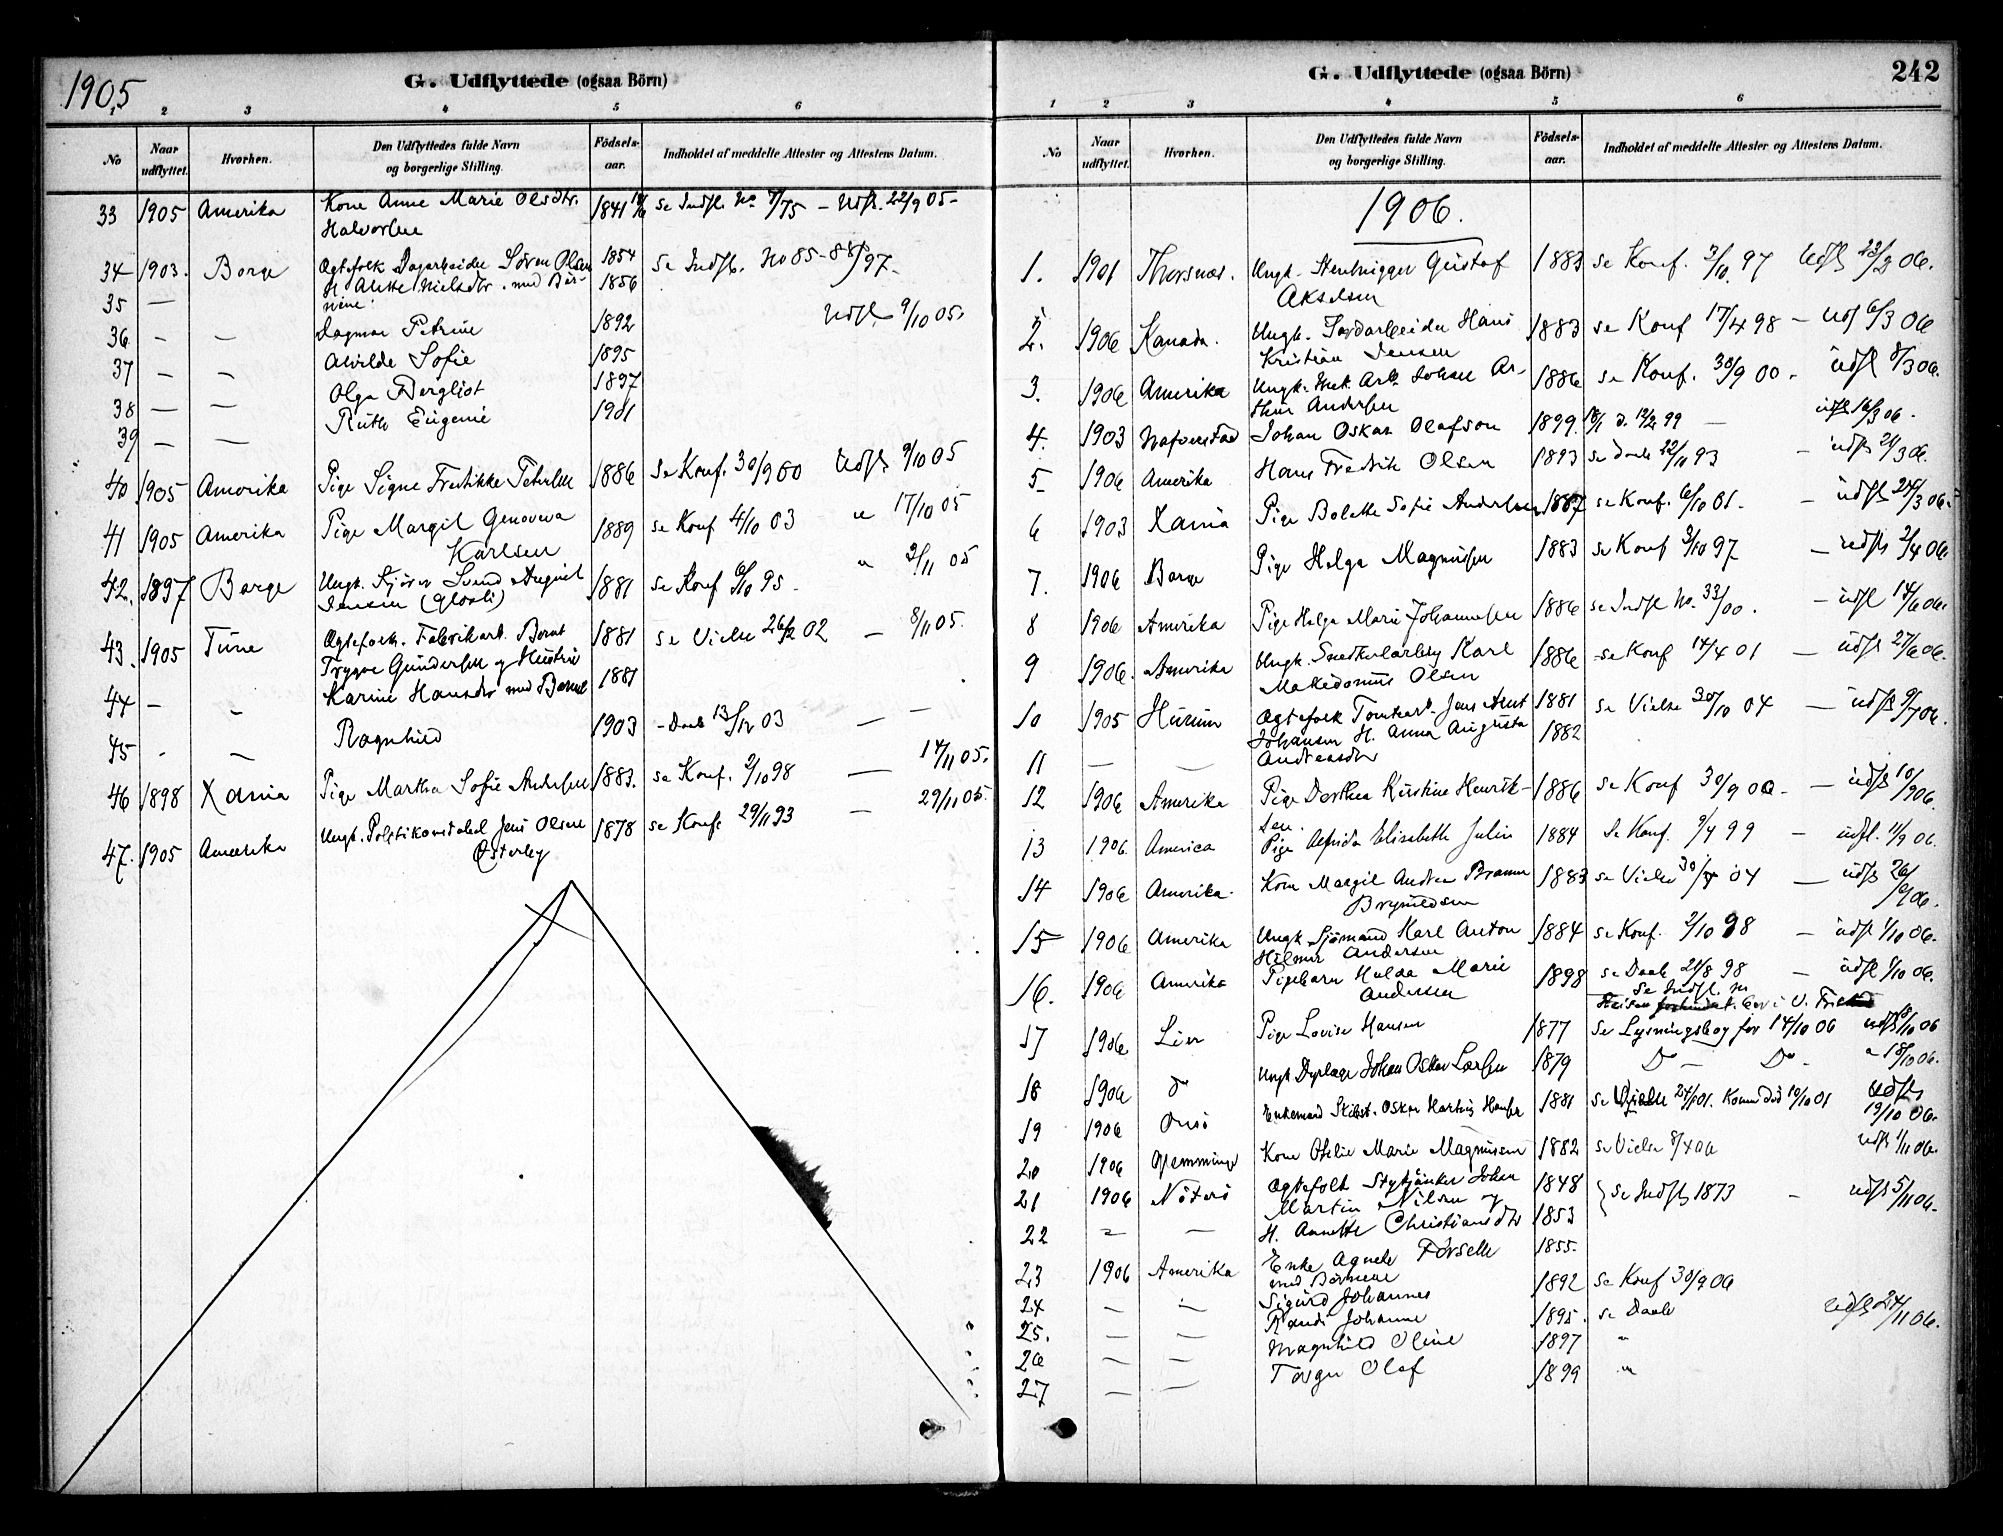 1905
G. Udflyttede (ogsaa Börn)
1 2 3 4 5 6
No Naar udflyttet. Hvorhen. Den Udflyttedes fulde Navn og borgerlige Stilling. Födsels-aar. Indholdet af meddelte Attester og Attestens Datum.
33 1905 Amerika Kone Anne Marie Olsdtr. 1841 se Indfl. No 7/75 – Udfl. 22/9 05 –
Halvorsen
34 1903. Borge Ægtefolk Dagarbeider Sören Olsen 1854 se Indfl. No 85-88/97 –
35 — H. Alette Nielsdtr. med Bör- 1856
nene: Udfl. 9/10 05.
36 — — Dagmar Petrine 1892
37 — — Alvilde Sofie 1895
38 — — Olga Bergliot 1897
39 — — Ruth Eugenie 1901
40 1905 Amerika Pige Signe Fredrikke Petersen 1886 se Konf. 30/9 00 Udfl. 9/10 05
41 1905 Amerika Pige Margit Genoveva 1889 se Konf 4/10 03 " 17/10 05
Karlsen
42. 1897 Borge Ungk. Sjöm. Svend August 1881 se Konf 6/10 95 – " 2/11 05
Jensen
43. 1905 Tune Ægtefolk. Fabrikarb. Bernt 1881 se Vielse 26/2 02 — 8/11 05.
Trygve Gundersen og Hustru
44 — — Karine Hansdtr med Barnet 1881
45 - — Ragnhild 1903 - Daab 13/12 03 — —
46 1898 Xania Pige Martha Sofie Andersen 1883. se Konf. 2/10 98 — 14/11 05.
47. 1905 Amerika Ungk. Politikonstabel Jens Olsen 1878 se Konf. 29/11 93 — 29/11 05.
Østerby
G. Udflyttede (ogsaa Börn)
242
1 2 3 4 5 6
No Naar udflyttet. Hvorhen. Den Udflyttedes fulde Navn og borgerlige Stilling. Födsels-aar. Indholdet af meddelte Attester og Attestens Datum.
1906.
1. 1901 Thorsnæs. Ungk. Stenhugger Gustaf 1883 se Konf. 3/10. 97 Udfl 23/2 06.
Akselsen
2. 1906 Kanada. Ungk. Jordarbeider Hans 1883 se Konf 17/4 98 – Udf 6/3 06
Kristian Jensen
3. 1906 Amerika Ungk. Mek. Arb. Johan Ar- 1886 se Konf. 30/9 00 – udfl 8/3 06.
thur Andersen
4. 1903 Johan Oskar Olafson 1899. 12/2 99 — udfl 16/3 06.
5 1906 Amerika Hans Fredrik Olsen 1893 se Daab 22/11 93 – udfl. 24/3 06.
6 1903 Xania Pige Bolette Sofie Andersen 1887 se Konf. 6/10 01. – udfl 24/3 06.
7. 1906 Borge Pige Helga Magnussen 1883 se Konf 3/10 97 — udfl 2/4 06
8 1906 Amerika Pige Helga Marie Johannesen 1886 se Indfl No. 33/00. — udfl 14/6 06.
9 1906. Amerika Ungk. Snedkerlærling Karl 1886 se Konf 14/4 01 — udfl 27/6 06.
Makedonius Olsen
10 1905 Hurum Ægtefolk Tomtearb. Jens Arnt 1881 se Vielse 30/10 04 — udfl 9/7 06.
Johansen H. Anna Augusta 1882
11 — — Andreasdtr
12 1906 Amerika Pige Dorthea Kirstine Henrik- 1886 se Konf 30/9 00 – — udfl 10/9 06.
sen.
13 1906. America Pige Alfrida Elisabeth Julin 1884 se Konf. 9/4 99 — udfl. 11/9 06.
14 1906 Amerika. Kone Margit Andrea 1883 se Vielse 04 — udfl 26/9 06.
Brynildsen
15 1906 Amerika Ungk Sjømand Karl Anton 1884 se Konf. 2/10 98 — udfl. 1/10 06.
Hilmer Andersen
16. 1906 Amerika Pigebarn Hulda Marie 1898 se Daab 21/8 98 — udfl 9/10 06.
Andersen se Indfl. No
17 1906 Lier Pige Lovise Hansen 1877 Se Lysningsbog for 14/10 06 udfl 18/10 06
18 1906 do Ungk Johan Oskar Larsen 1879 Do — Do - " 18/10 06.
19 1906 Onsö Enkemand Oskar Martius Hansen 1881 se Vielse udfl
19/10 06.
20 1906 Glemminge Kone Otelie Marie Magnussen 1882 se Vielse 8/4 06 udfl 1/11 06.
21 1906 Nöterö Ægtefolk Johan 1848 } se Indfl 1873 – udfl 5/11 06.
Martin Nilsen og
22 — — H. Annette Christiansdtr 1853
23 1906 Amerika Enke Agnete Forselle 1855.
med Börnene
24 — — Sigurd Johannes 1892 se Konf 30/9 06
25. — — Randi Johanne 1895. se Daab udfl 24/11 06.
26 — — Magnhild Oline 1897 "
27 — — Torger Olaf 1899 "